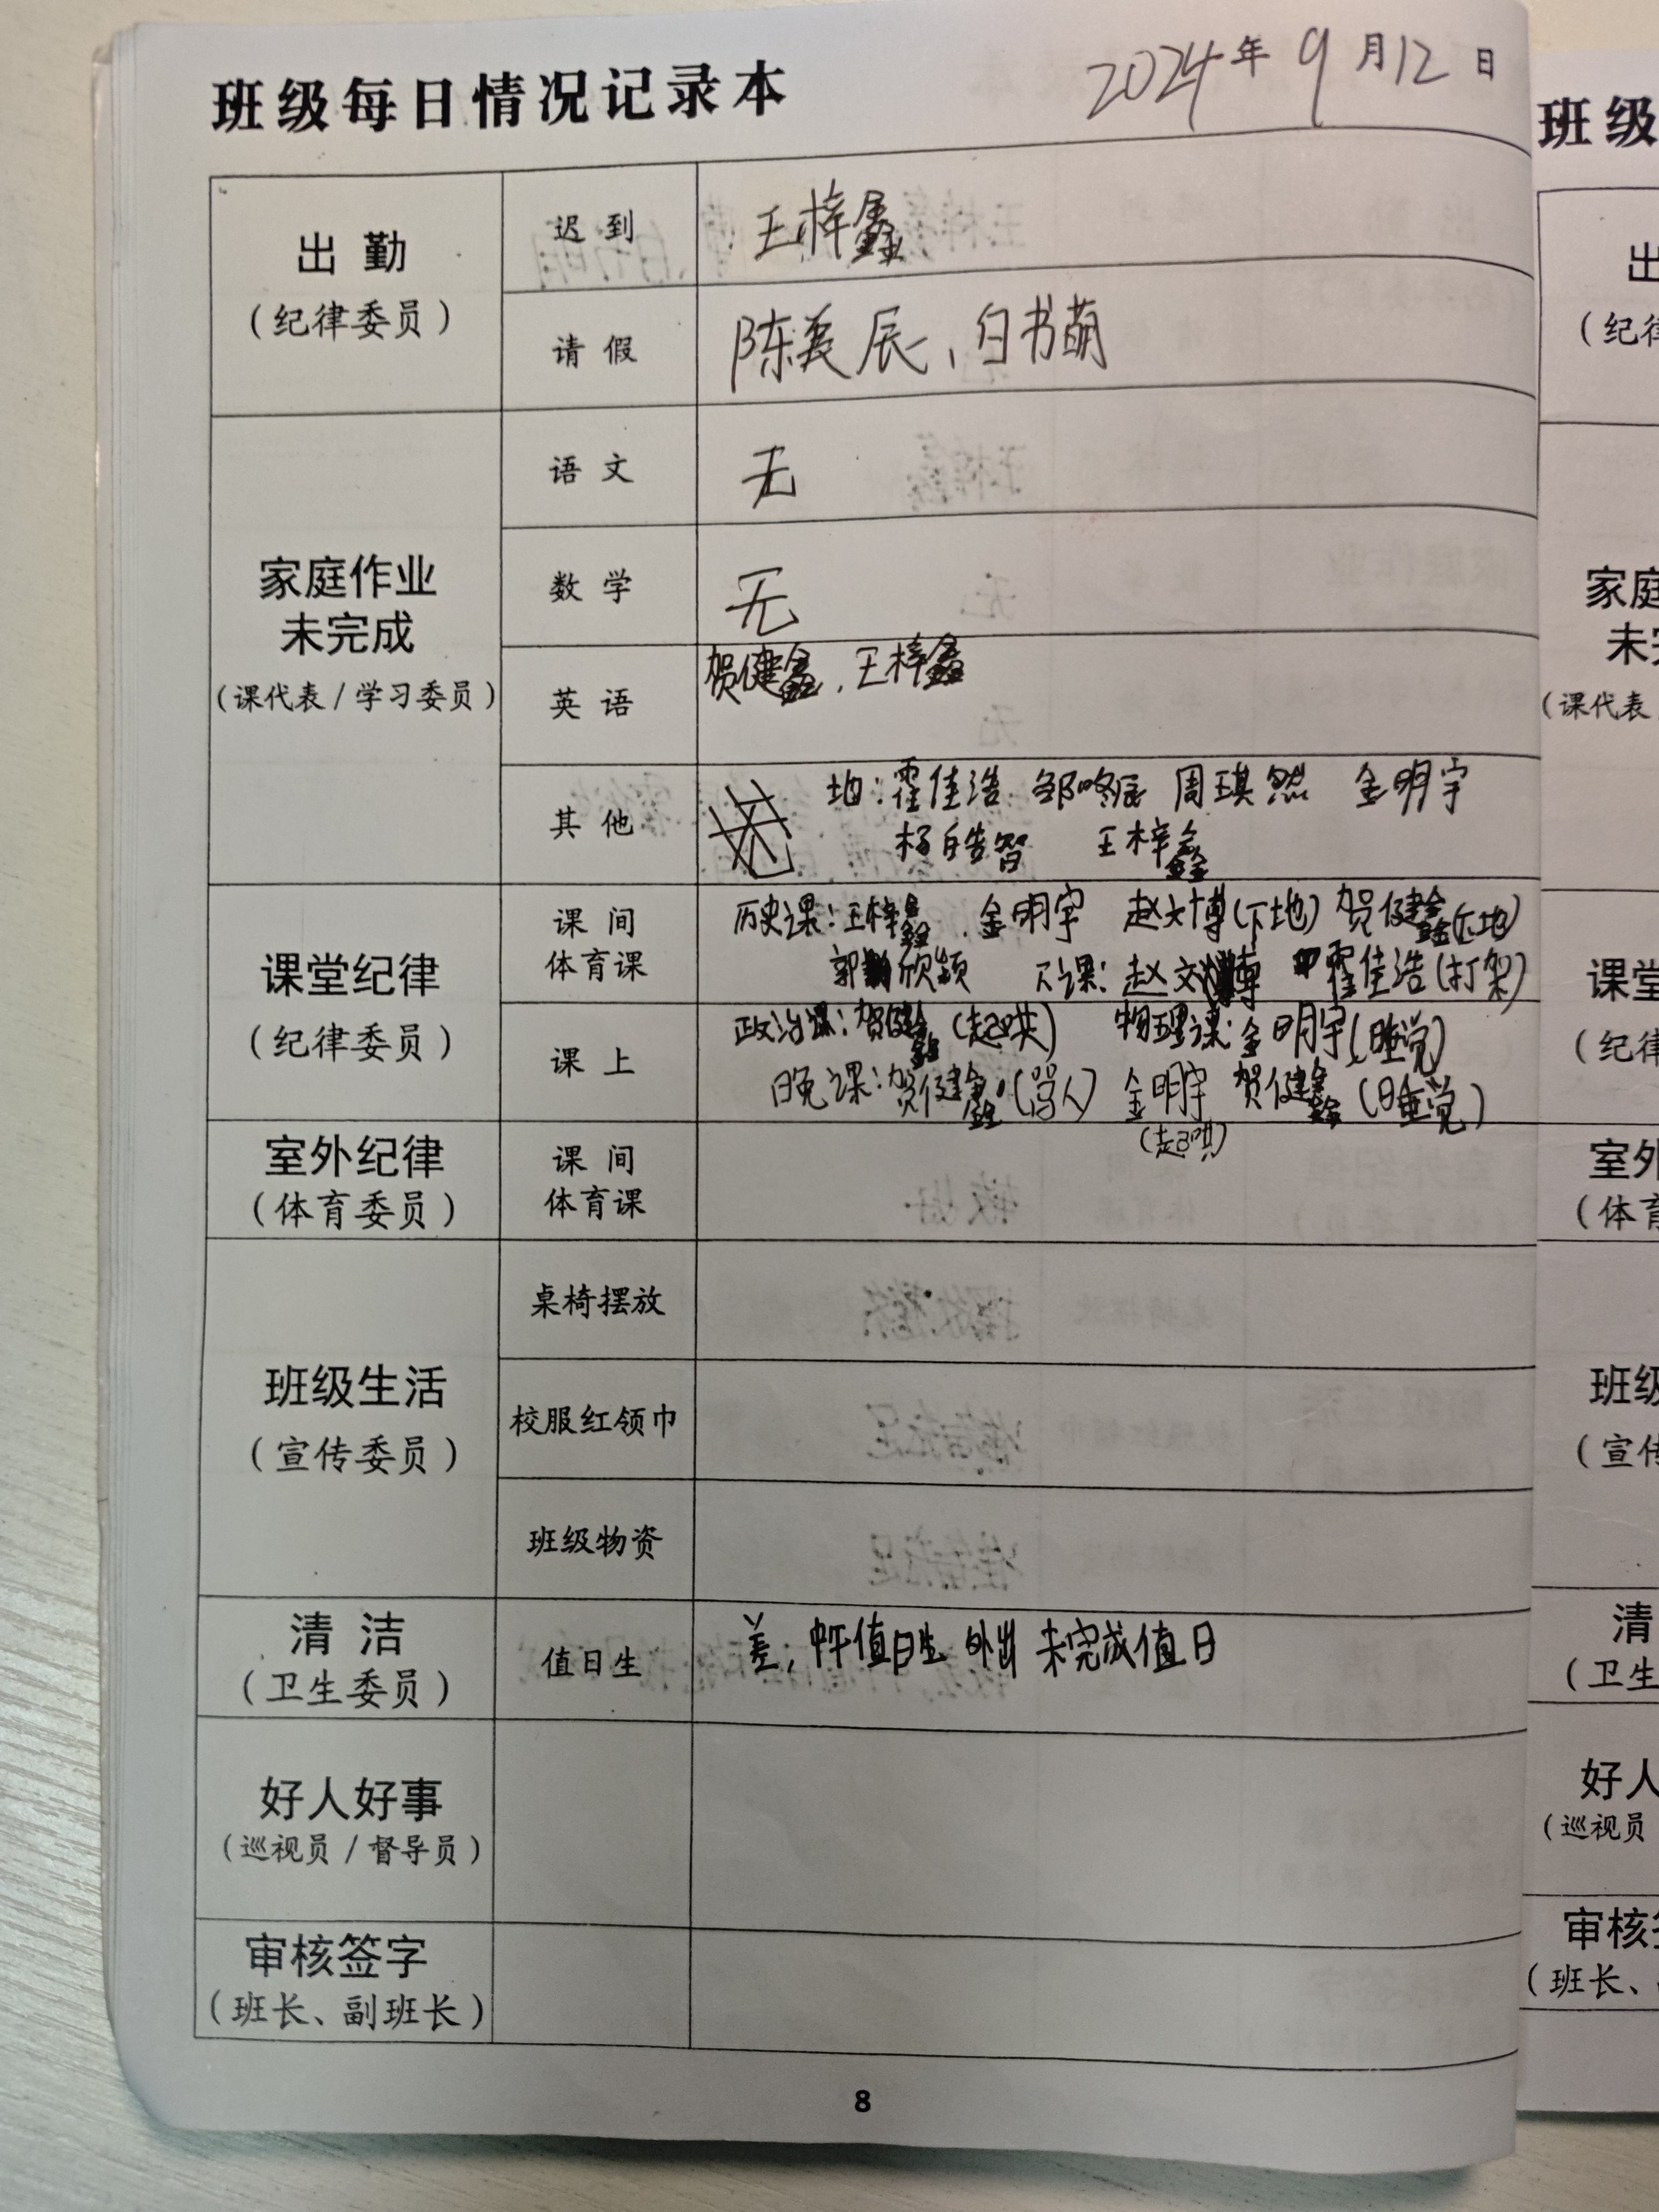 班级每日情况记录本
2024年9月12日
出勤
(纪律委员)
迟到
王梓鑫
请假
陈美辰、白书萌
家庭作业
未完成
(课代表/学习委员)
语文
无
数学
无
英语
贺健鑫、王梓鑫
其他
地:霍佳浩 周琪然 金明宇
杨皓智 王梓鑫
课堂纪律
(纪律委员)
课间
体育课
历史课:王梓鑫、金明宇 赵文博(下地) 贺健鑫(下地)
郭欣颖 下课:赵文博 霍佳浩(打架)
课上
政治课:贺健鑫(起哄) 物理课:金明宇(睡觉)
晚课:贺健鑫(骂人) 金明宇 贺健鑫(睡觉)
(起哄)
室外纪律
(体育委员)
课间
体育课
班级生活
(宣传委员)
桌椅摆放
校服红领巾
班级物资
清洁
(卫生委员)
值日生
差,中午值日生 外出 未完成值日
好人好事
(巡视员/督导员)
审核签字
(班长、副班长)
8
班级
出
(纪律
家庭
未完
(课代表
课堂
(纪律
室外
(体育
班级
(宣传
清
(卫生
好人
(巡视员
审核签
(班长、